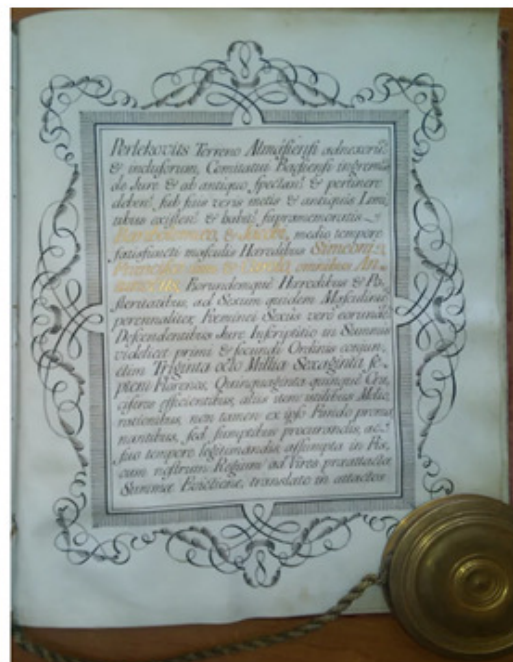 8
Perlekovits Terreno Almásiensi adnexorũ
& inclusorum, Comitatui Bacsiensi ingremiatis
de Jure & ab antiquo spectan: & pertinere
deben: sub suis veris metis & antiquis Limi,
tibus existen: & habit: supramemoratis
Bartholomæo, & Jacobo, medio tempore
satisfuncti masculis Hæredibus Simeoni,
Francisco & Carolo, omnibus
Eorundemque Hæredibus & Po,
steritatibus, ad Sexum quidem Masculinum
perennaliter, Fœminei Sexus verò eorundem
Descendentibus Jure Inscriptitio in Summis
videlicet primi & secundi Ordinis conjun,
ctim Triginta octo Millia Sexaginta se,
ptem Florenos, Quinquaginta quinque Cru,
ciferos efficientibus, aliis item utilibus Melio,
rationibus, non tamen ex ipso Fundo proma,
nantibus, sed sumptibus procurandis, ac
suo tempore legitimandis, assumpta in Fis,
cum nostrum Regium ad Vires præattactæ
Summæ Evictione, translato in attactos
8